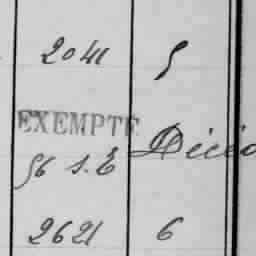 2041 5
EXEMPTE
56 S.E Décéd
2621 6